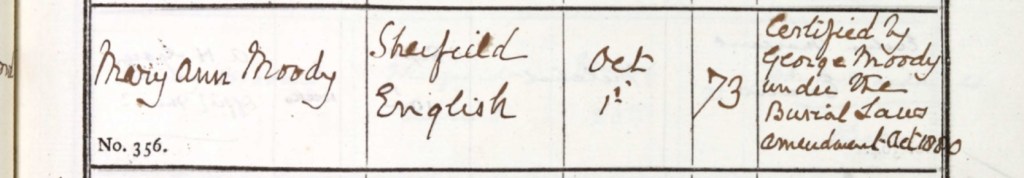 Mary Ann Moody
No. 356.
Sheifield
English
Oct
1st
73
Certified by
George Moody
under the
Burial Laws
amendment Act 1880